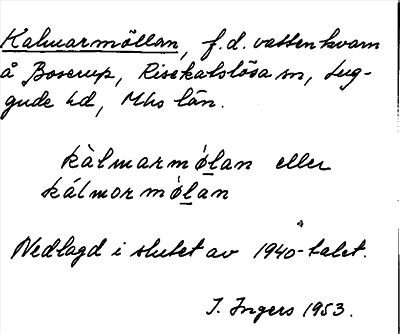 Kalmarmöllan, f.d. vattenkvarn
å Boserup, Risekatslösa sn, Lug-
gude hd, Mhs län.
kàlmarmǿlan eller
kálmormǿlan
Nedlagd i slutet av 1940-talet.
I. Ingers 1953.